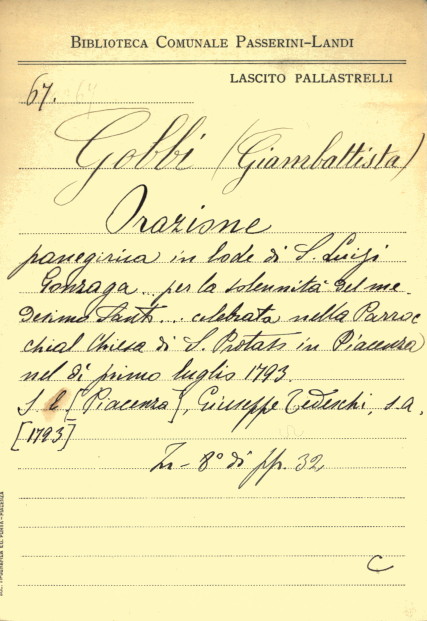 BIBLIOTECA COMUNALE PASSERINI-LANDI
LASCITO PALLASTRELLI
67.
Gobbi (Giambattista)
Orazione
panegirica in lode di S. Luigi
Gonzaga... per la solennità del me-
desimo Santo... celebrata nella Parroc
chial Chiesa di S. Protaso in Piacenza
nel dì primo luglio 1793.
S. l. [Piacenza], Giuseppe Tedeschi, s.a.
[1793]
In-8° di pp. 32
C